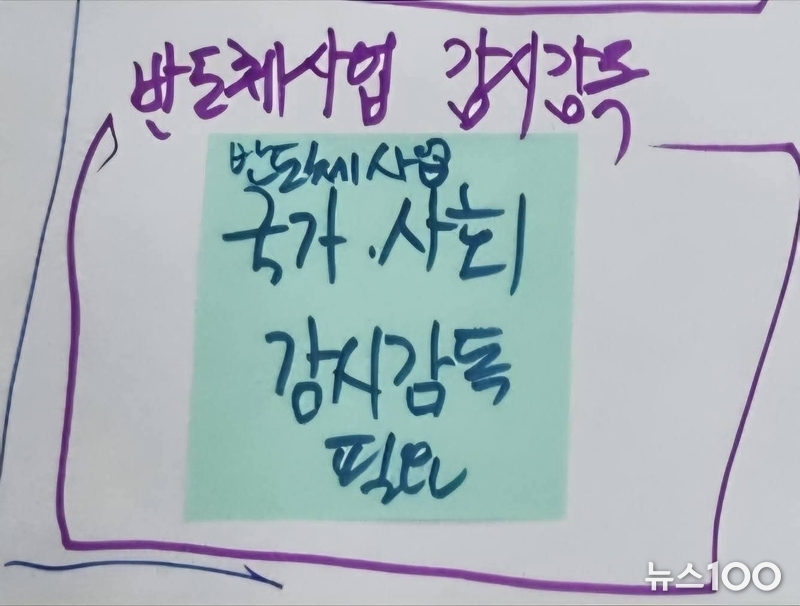 반도체사업 감시감독
반도체사업
국가·사회
감시감독
필요
뉴스100